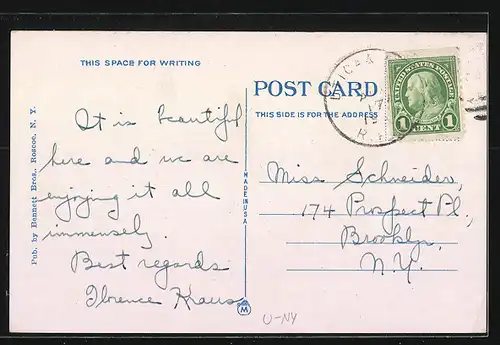 THIS SPACE FOR WRITING
It is beautiful
here and we are
enjoying it all
immensely.
Best regards
Florence Kraus
Pub. by Bennett Bros. Roscoe, N. Y.
MADE IN U.S.A.
M
POST CARD
THIS SIDE IS FOR THE ADDRESS
UTICA &
17
R.P.
UNITED STATES POSTAGE
1 CENT 1
Miss Schneider,
174 Prospect Pl.,
Brooklyn,
N.Y.
U-NY